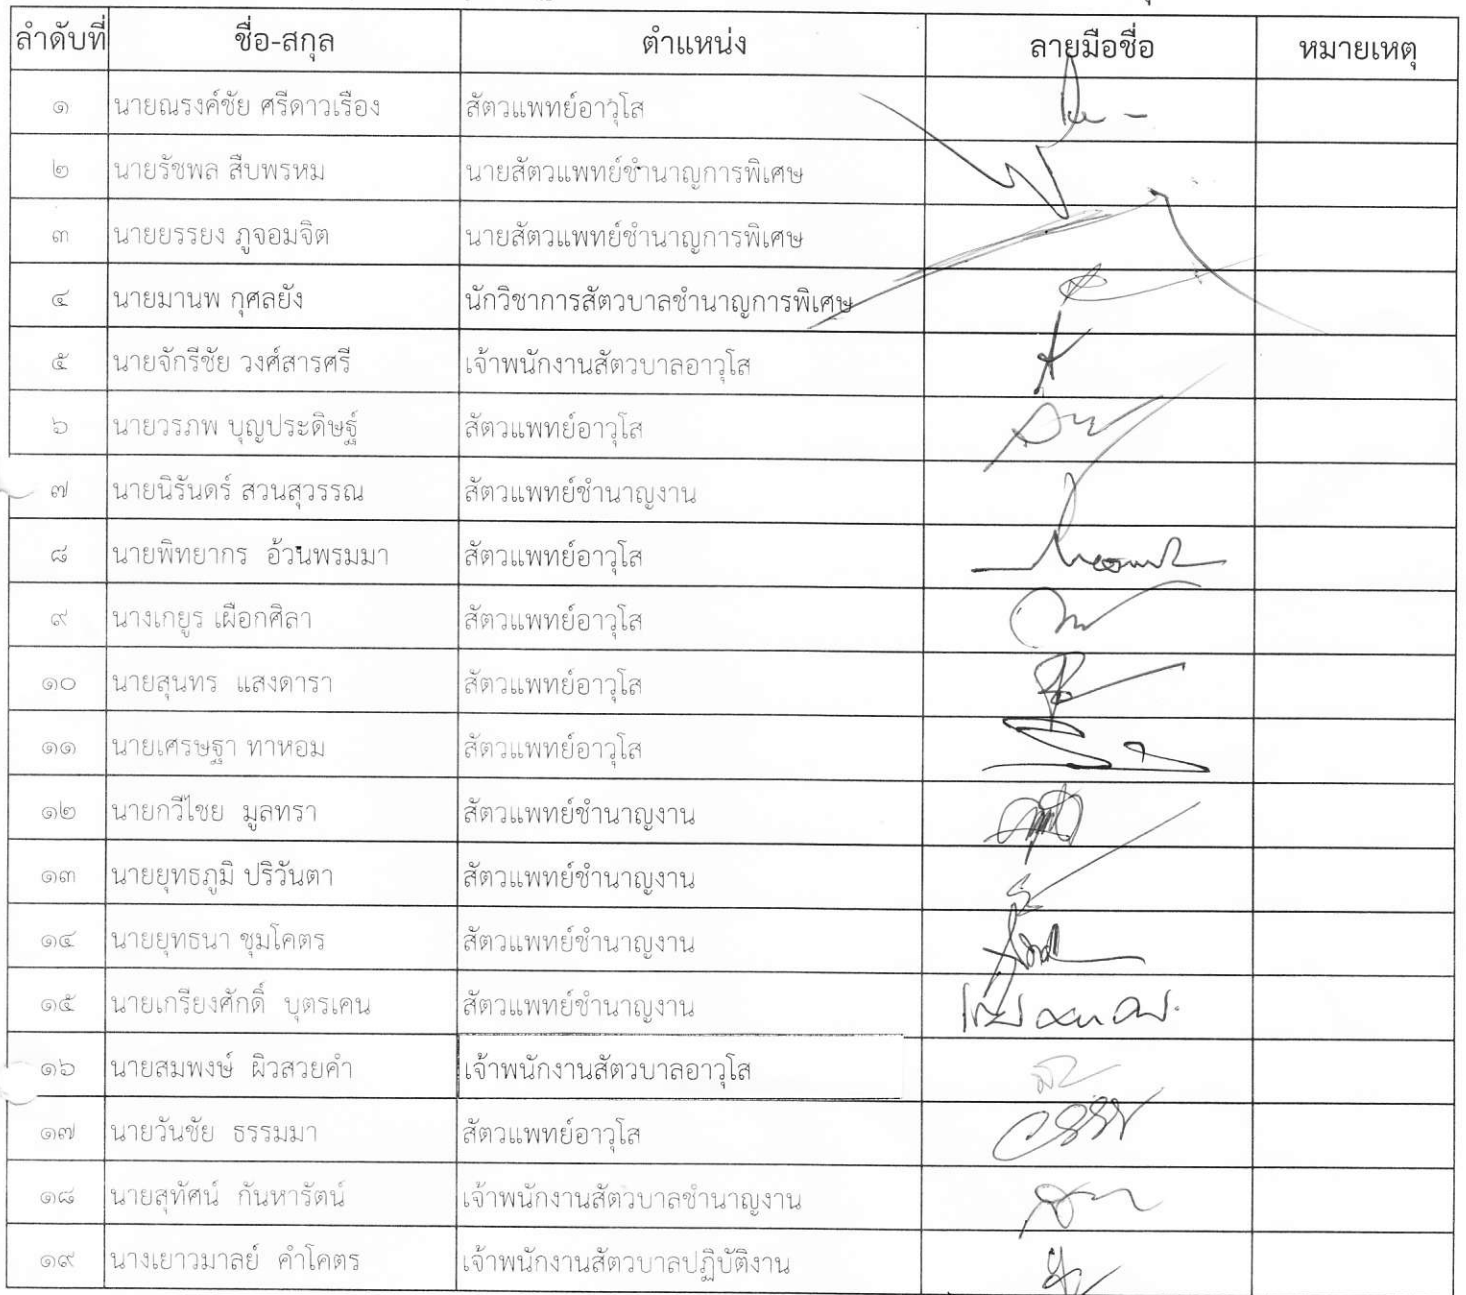 ลำดับที่ ชื่อ-สกุล ตำแหน่ง ลายมือชื่อ หมายเหตุ
๑ นายณรงค์ชัย ศรีดาวเรือง สัตวแพทย์อาวุโส
๒ นายรัชพล สืบพรหม นายสัตวแพทย์ชำนาญการพิเศษ
๓ นายยรรยง ภูจอมจิต นายสัตวแพทย์ชำนาญการพิเศษ
๔ นายมานพ กุศลยัง นักวิชาการสัตวบาลชำนาญการพิเศษ
๕ นายจักรีชัย วงศ์สารศรี เจ้าพนักงานสัตวบาลอาวุโส
๖ นายวรภพ บุญประดิษฐ์ สัตวแพทย์อาวุโส
๗ นายนิรันดร์ สวนสุวรรณ สัตวแพทย์ชำนาญงาน
๘ นายพิทยากร อ้วนพรมมา สัตวแพทย์อาวุโส
๙ นางเกยูร เผือกศิลา สัตวแพทย์อาวุโส
๑๐ นายสุนทร แสงดารา สัตวแพทย์อาวุโส
๑๑ นายเศรษฐา ทาหอม สัตวแพทย์อาวุโส
๑๒ นายกวีไชย มูลทรา สัตวแพทย์ชำนาญงาน
๑๓ นายยุทธภูมิ ปริวันตา สัตวแพทย์ชำนาญงาน
๑๔ นายยุทธนา ชุมโคตร สัตวแพทย์ชำนาญงาน
๑๕ นายเกรียงศักดิ์ บุตรเคน สัตวแพทย์ชำนาญงาน
๑๖ นายสมพงษ์ ผิวสวยคำ เจ้าพนักงานสัตวบาลอาวุโส
๑๗ นายวันชัย ธรรมมา สัตวแพทย์อาวุโส
๑๘ นายสุทัศน์ กันหารัตน์ เจ้าพนักงานสัตวบาลชำนาญงาน
๑๙ นางเยาวมาลย์ คำโคตร เจ้าพนักงานสัตวบาลปฏิบัติงาน